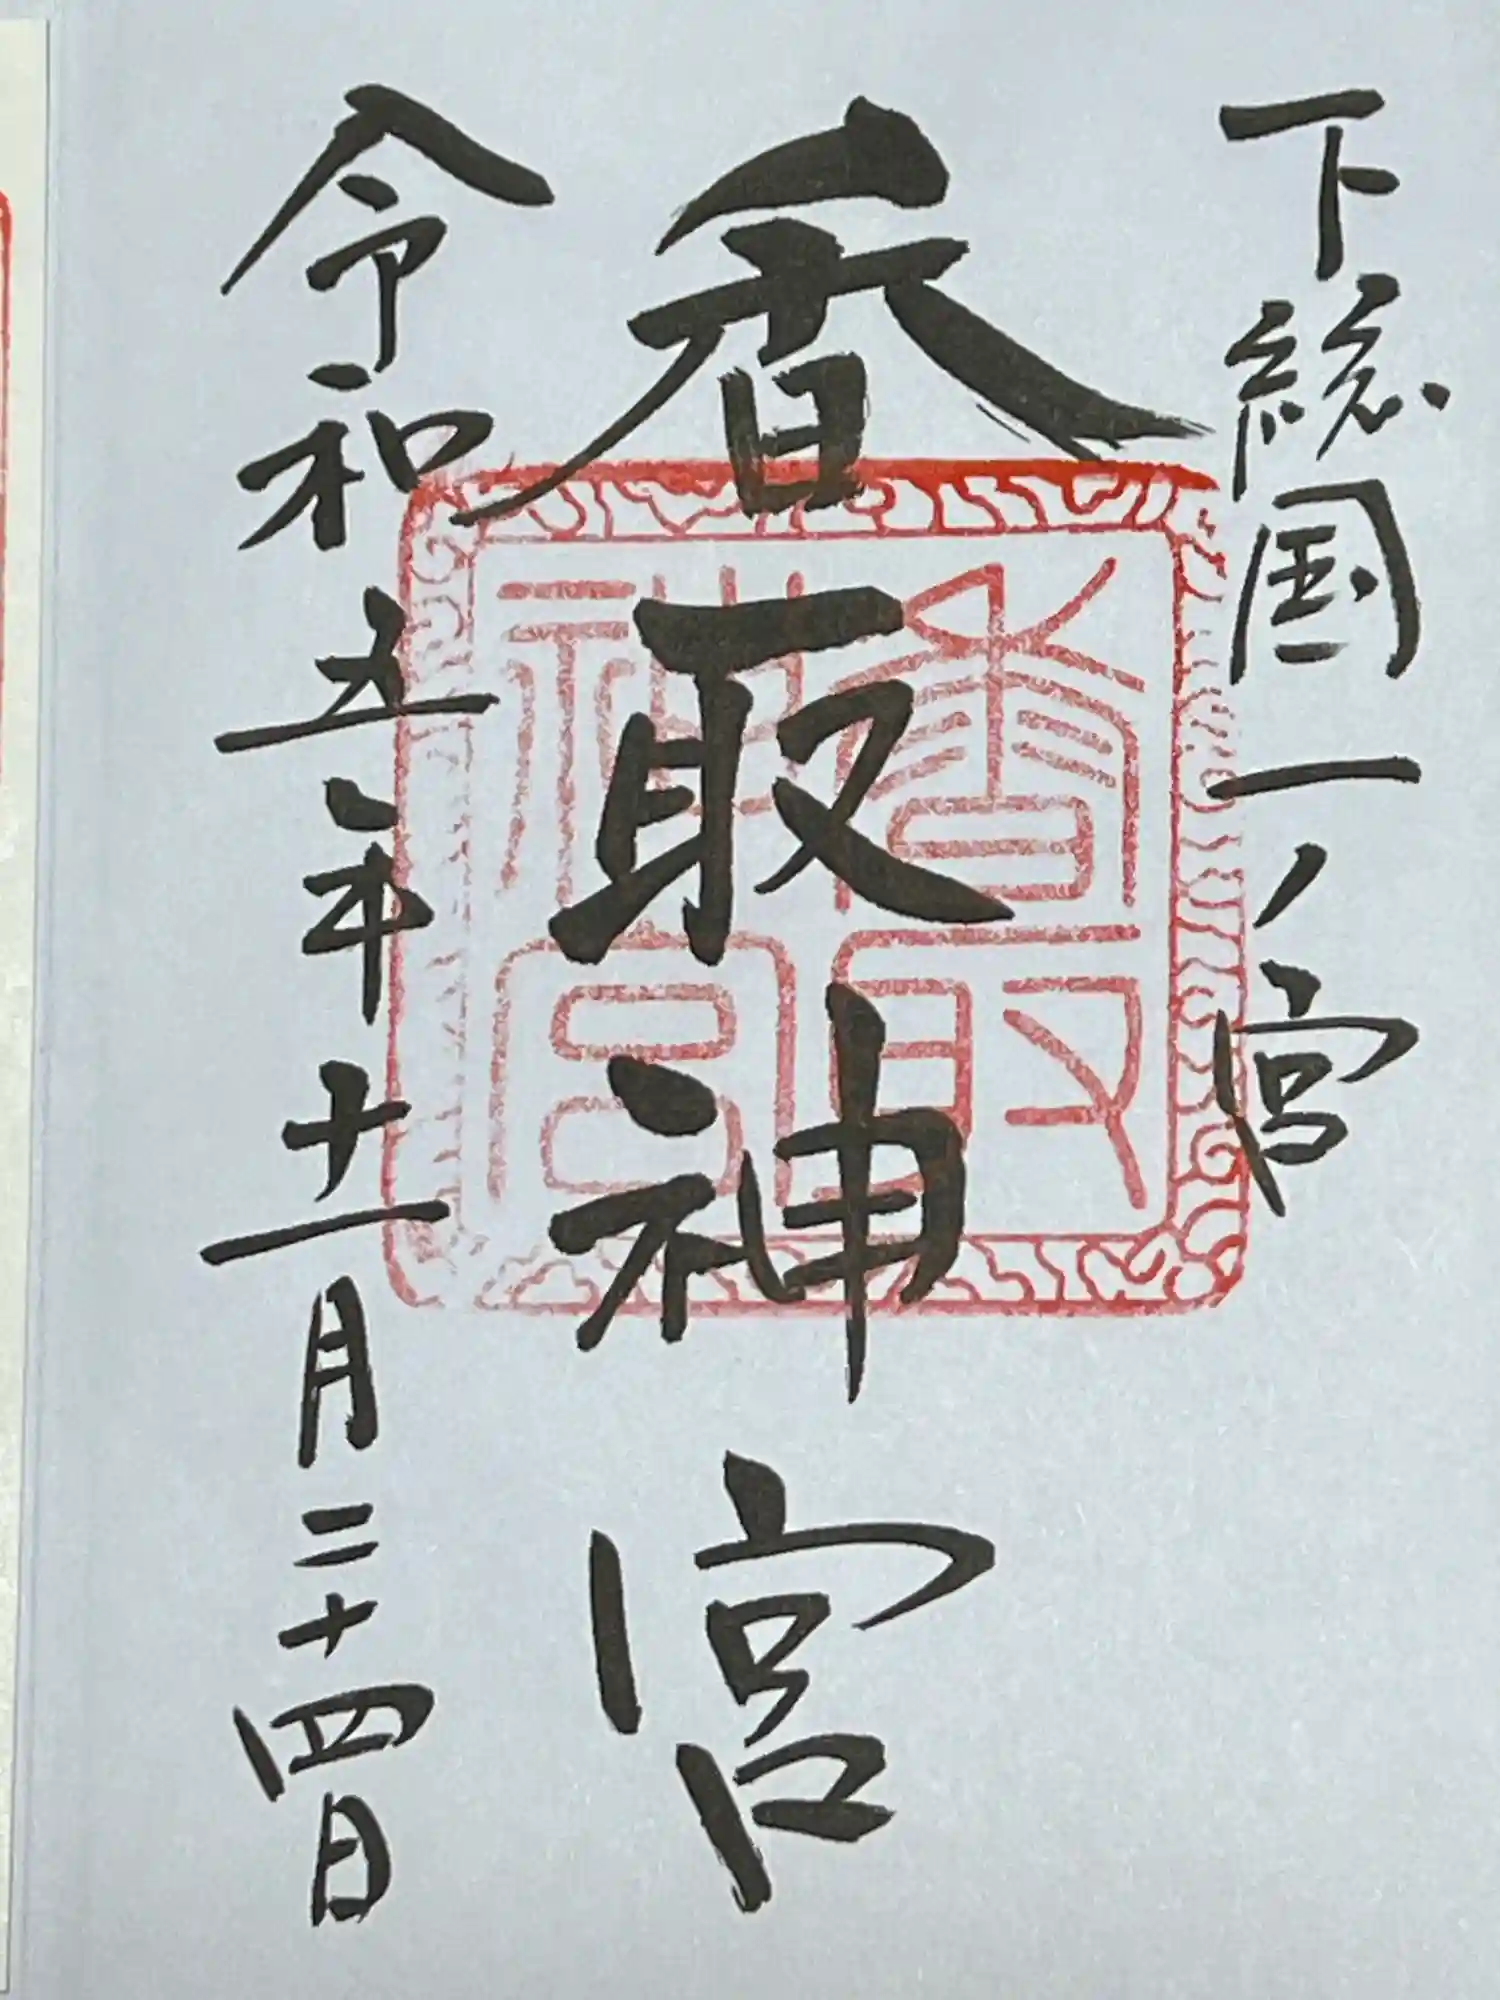 下総国一ノ宮
香取神宮
令和五年十一月二十四日
香取神宮